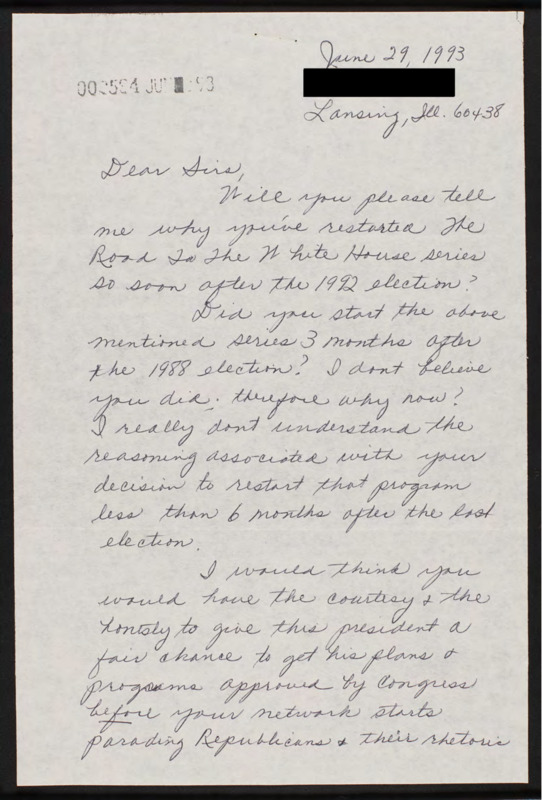 June 29, 1993
Lansing, Ill. 60438
Dear Sirs,
Will you please tell
me why you've restarted The
Road To The White House series
so soon after the 1992 election?
Did you start the above
mentioned series 3 months after
the 1988 election? I dont believe
you did; therefore why now?
I really dont understand the
reasoning associated with your
decision to restart that program
less than 6 months after the last
election.
I would think you
would have the courtesy & the
hontsly to give this president a
fair chance to get his plans &
programs approved by Congress
before your network starts
parading Republicans & their rhetoric